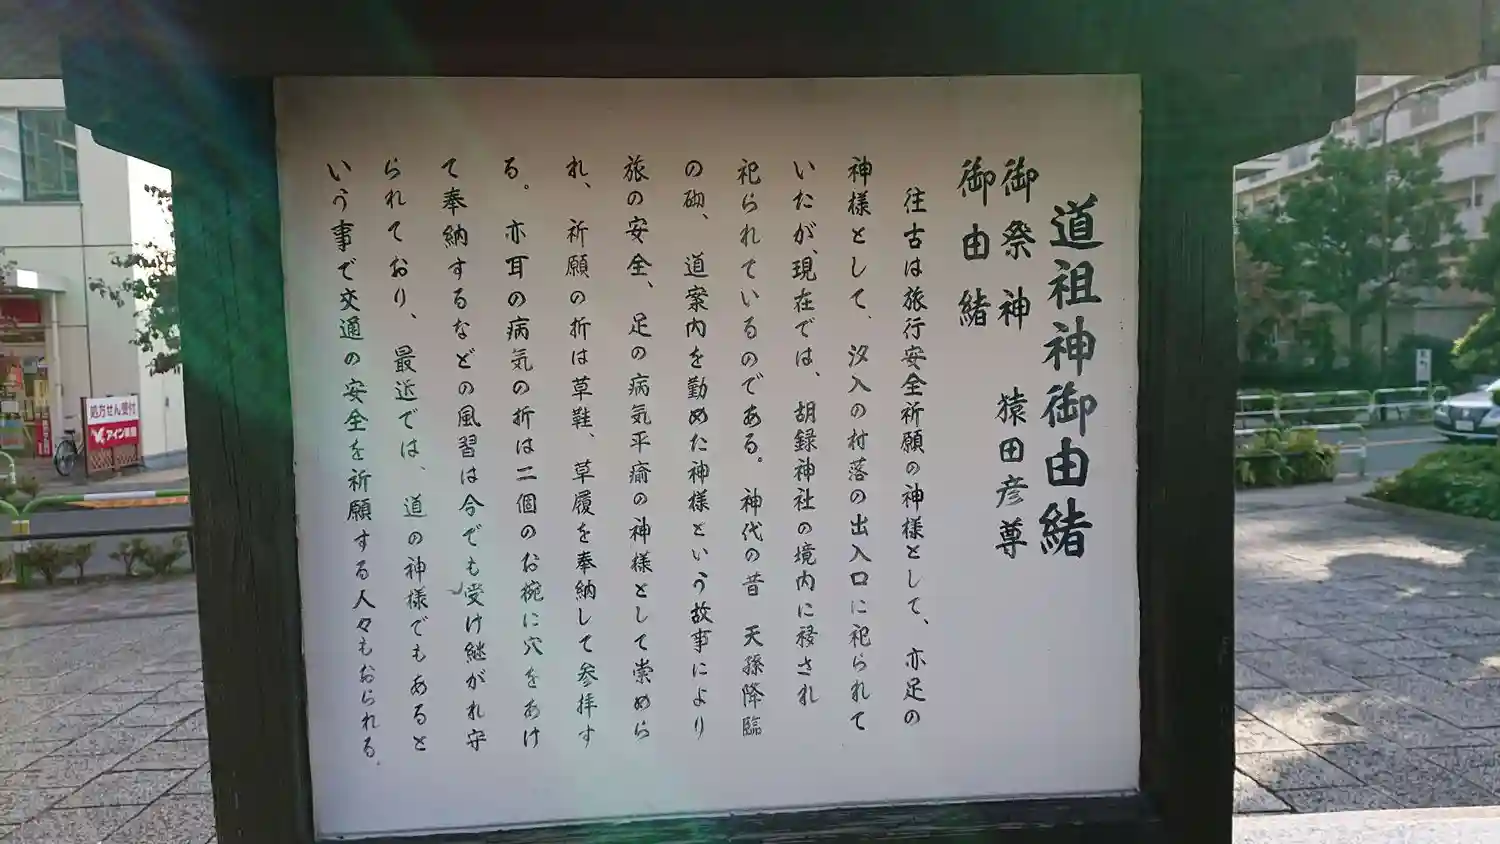 道祖神御由緒
御祭神　猿田彦尊
御由緒
往古は旅行安全祈願の神様として、亦足の
神様として、汐入の村落の出入口に祀られて
いたが、現在では、胡録神社の境内に移され
祀られているのである。神代の昔　天孫降臨
の砌、道案内を勤めた神様という故事により
旅の安全、足の病気平癒の神様として崇めら
れ、祈願の折は草鞋、草履を奉納して参拝す
る。亦耳の病気の折は二個のお椀に穴をあけ
て奉納するなどの風習は今でも受け継がれ守
られており、最近では、道の神様でもあると
いう事で交通の安全を祈願する人々もおられる。
処方せん受付
アイン薬局